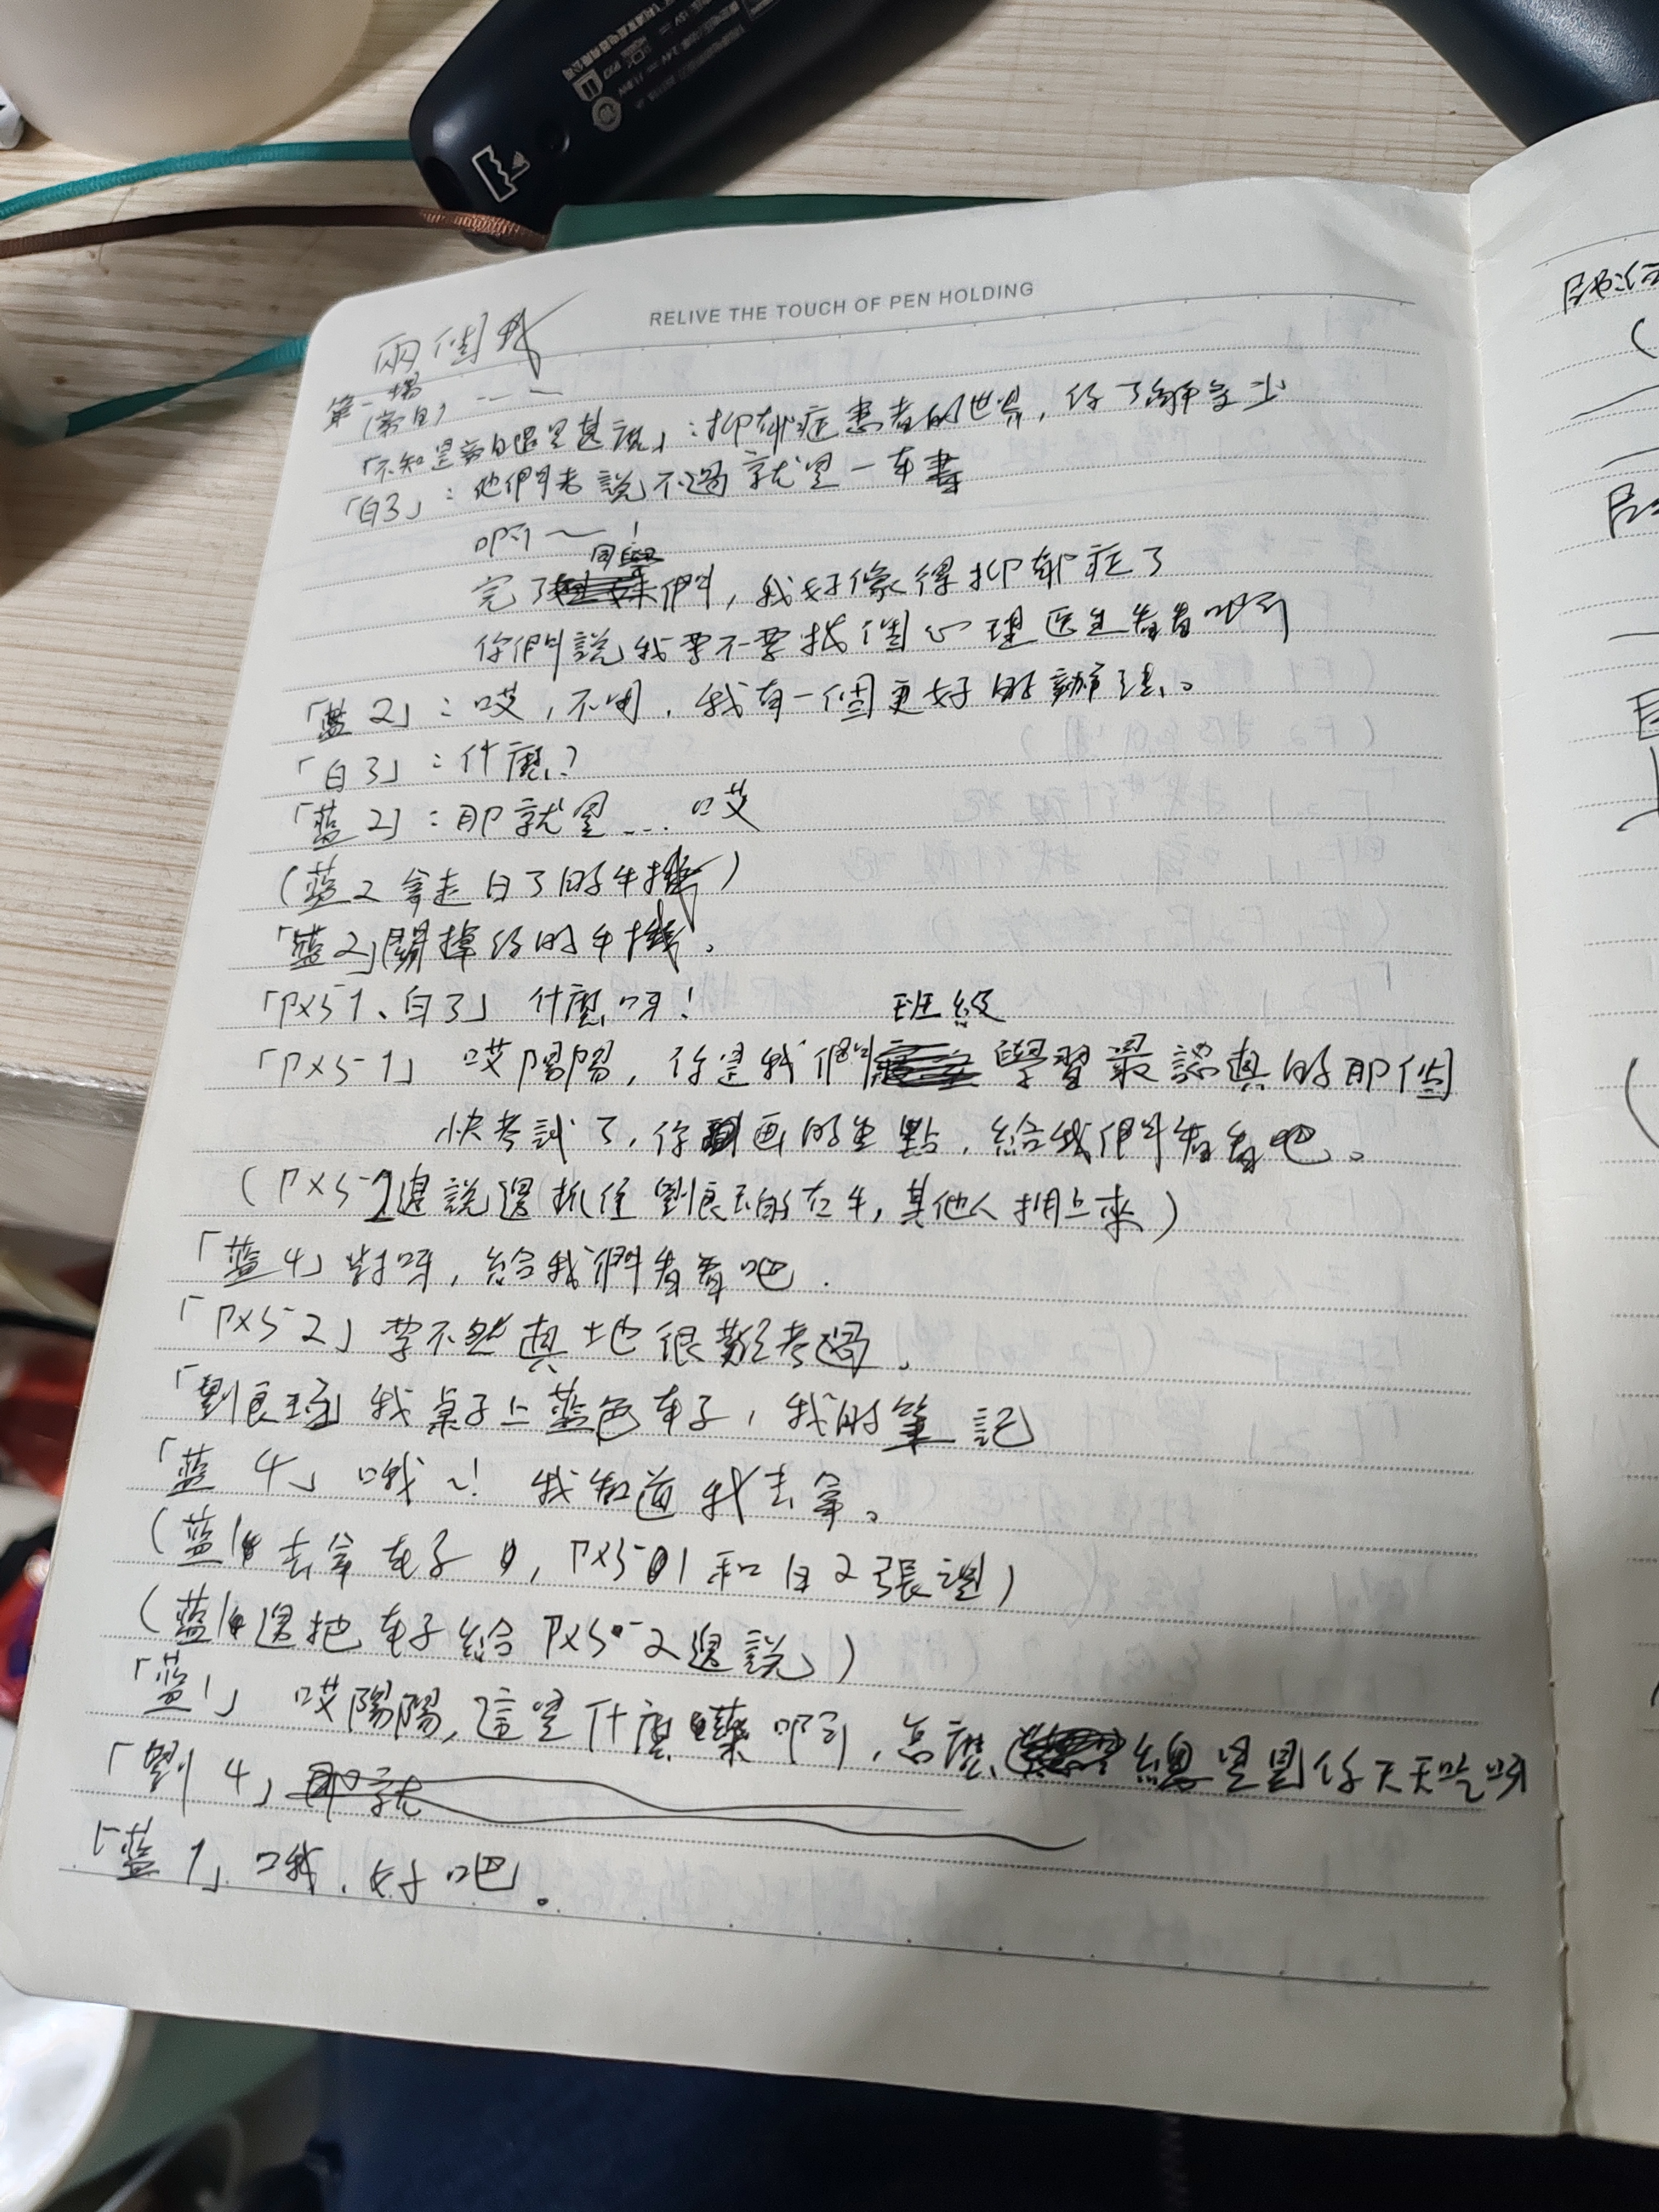 RELIVE THE TOUCH OF PEN HOLDING
兩個我
第一場
(旁白) — —
「不知是旁白還是甚麼」:抑郁症患者的世界,你了解多少
「白3」:他們老說不過就是一本書
啊~!
同學
完了們,我好像得抑郁症了
你們說我要不要找個心理医生看看啊
「蓝2」:哎,不用,我有一個更好的辦法。
「白3」:什麼?
「蓝2」:那就是... 哎
(蓝2拿走白3的手機)
「蓝2」關掉你的手機。
「PXS-1、白3」 什麼呀!
班級
「PXS-1」 哎陽陽,你是我們學習最認真的那個
快考試了,你画的重點,給我們看看吧。
(PXS-2邊說邊抓住劉的右手,其他人拥上來)
「蓝4」對呀,給我們看看吧.
「PXS-2」要不然真地很難考過。
「劉」我桌子上蓝色本子,我的筆記
「蓝4」哦~! 我知道我去拿。
(蓝1去拿本子,PXS-1和白2張望)
(蓝1邊把本子給PXS-2邊說)
「蓝1」 哎陽陽,這是什麼藥啊,怎麼總是見你天天吃呀
「劉4」
「蓝1」哦,好吧。